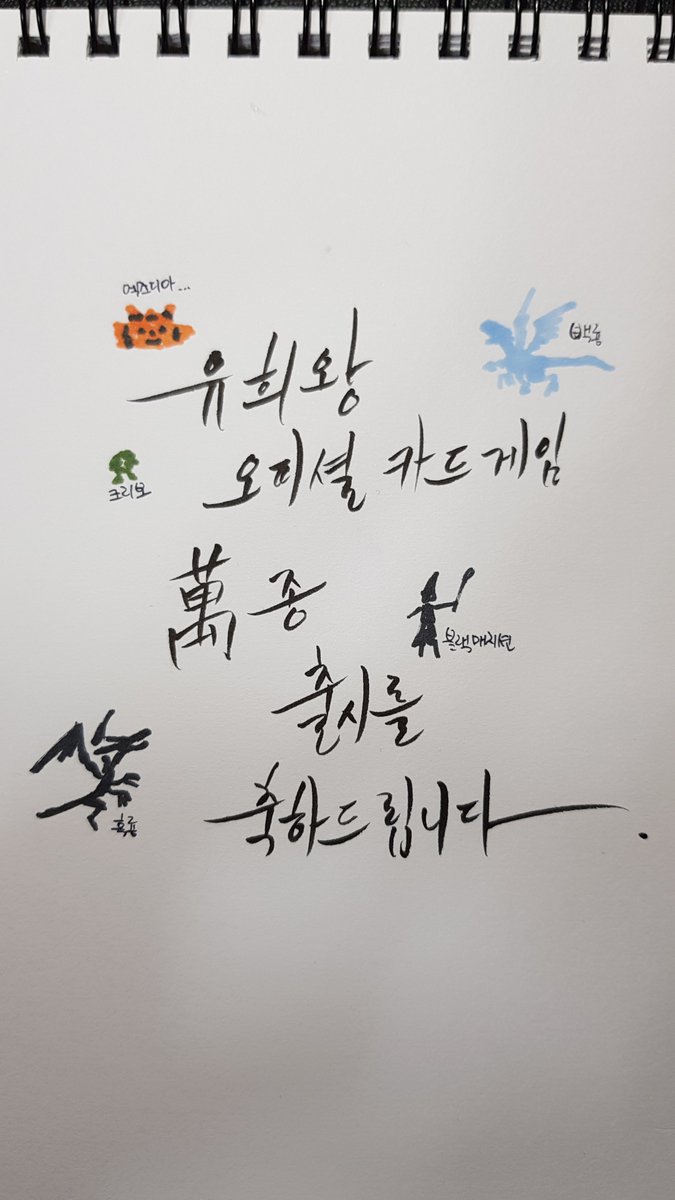 엑조디아...
백룡
유희왕
크리보
오피셜 카드게임
萬 종
블랙매지션
출시를
흑룡
축하드립니다.